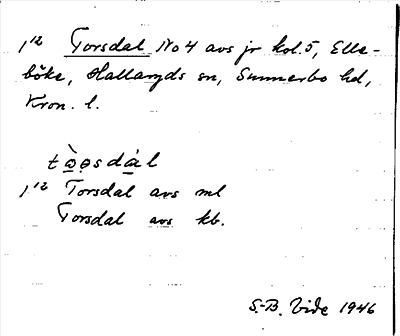 1¹² Torsdal No 4 avs jr kol. 5, Elle-
böke, Hallaryds sn, Sunnerbo hd,
Kron. l.
tɷ̀ɷsdál
1¹² Torsdal avs ml
Torsdal avs kb.
S.-B. Vide 1946